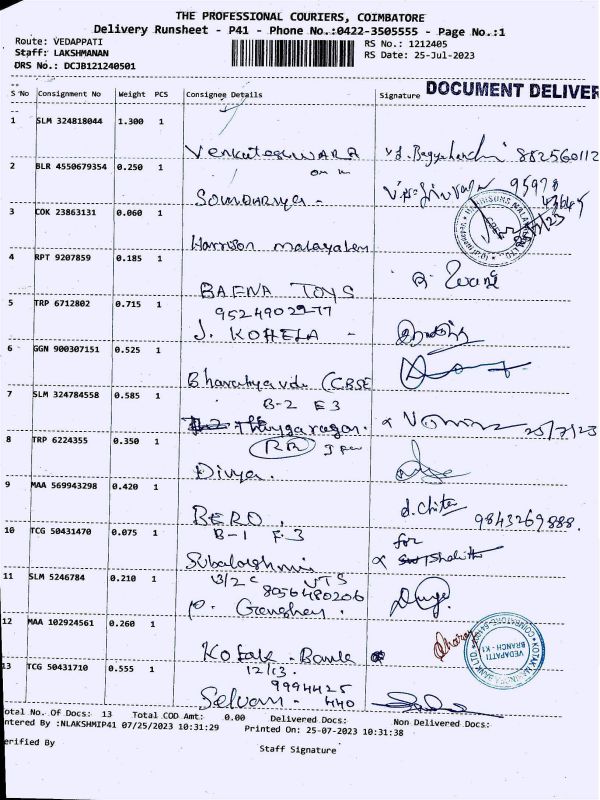 THE PROFESSIONAL COURIERS, COIMBATORE
Delivery Runsheet - P41 - Phone No.:0422-3505555 - Page No.:1
Route: VEDAPPATI
RS No.: 1212405
Staff: LAKSHMANAN
RS Date: 25-Jul-2023
DRS No.: DCJB121240501
DOCUMENT DELIVER
S No Consignment No Weight PCS Consignee Details Signature
1 SLM 324818044 1.300 1
VENKATESWARA 882560112
2 BLR 4550679354 0.250 1
Soundarya -
3 COK 23863131 0.060 1
Harrison malayalam
4 RPT 9207859 0.185 1
BAFNA TOYS
5 TRP 6712802 0.715 1
9524902977
J. KOHELA -
6 GGN 900307151 0.525 1
Bharatiya (CBSE
7 SLM 324784558 0.585 1
B-2 F3
Thiyagaragar. 25/7/23
8 TRP 6224355 0.350 1
RR
Divya.
9 MAA 569943298 0.420 1
d.chitra
BERO. 9843269888.
10 TCG 50431470 0.075 1
B-1 F3
for
Subalakshmi
11 SLM 5246784 0.210 1
V/2 C VTS
8056480206
P. Ganghey.
12 MAA 102924561 0.260 1
KOTAK MAHINDRA BANK LTD
VEDAPATTI
BRANCH - K1
Kotak - Bank
13 TCG 50431710 0.555 1
12/13.
9994425
Selvam - 440
Total No. Of Docs: 13 Total COD Amt: 0.00 Delivered Docs: Non Delivered Docs:
ntered By :NLAKSHMIP41 07/25/2023 10:31:29 Printed On: 25-07-2023 10:31:38
erified By
Staff Signature